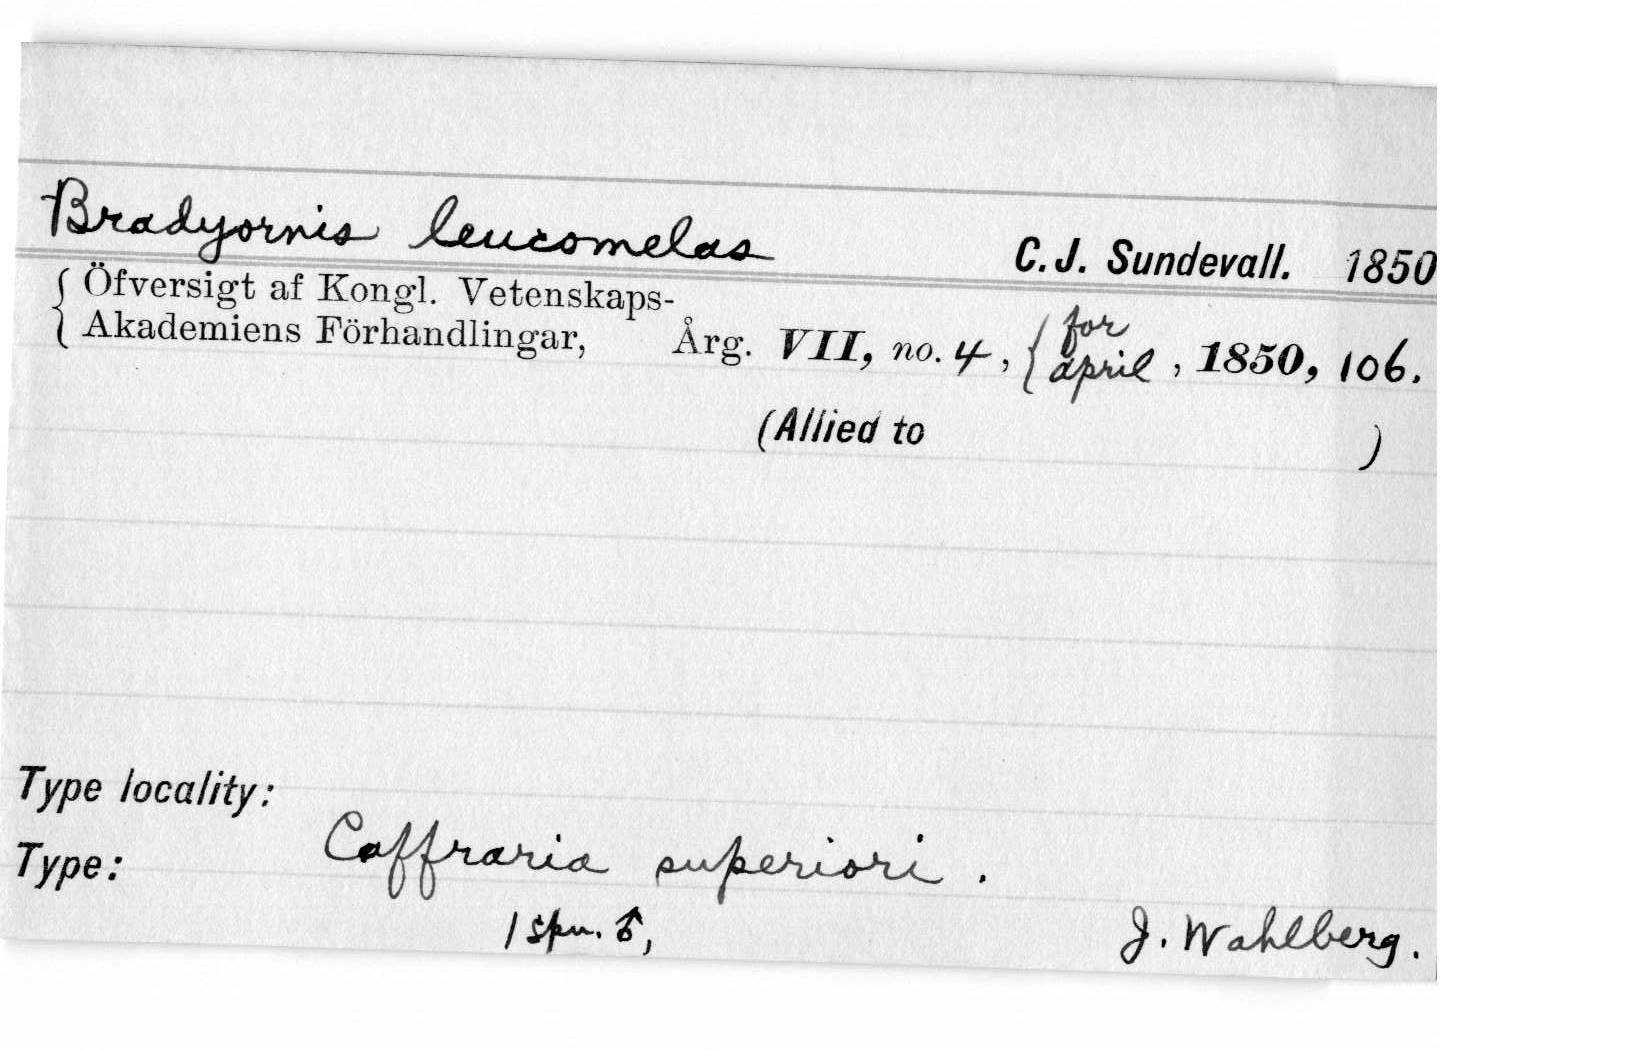 Bradyornis leucomelas C. J. Sundevall. 1850
{ Öfversigt af Kongl. Vetenskaps-
Akademiens Förhandlingar, Årg. VII, no. 4, { for april, 1850, 106.
(Allied to )
Type locality:
Caffraria superiori.
Type:
1 spn. ♂, J. Wahlberg.